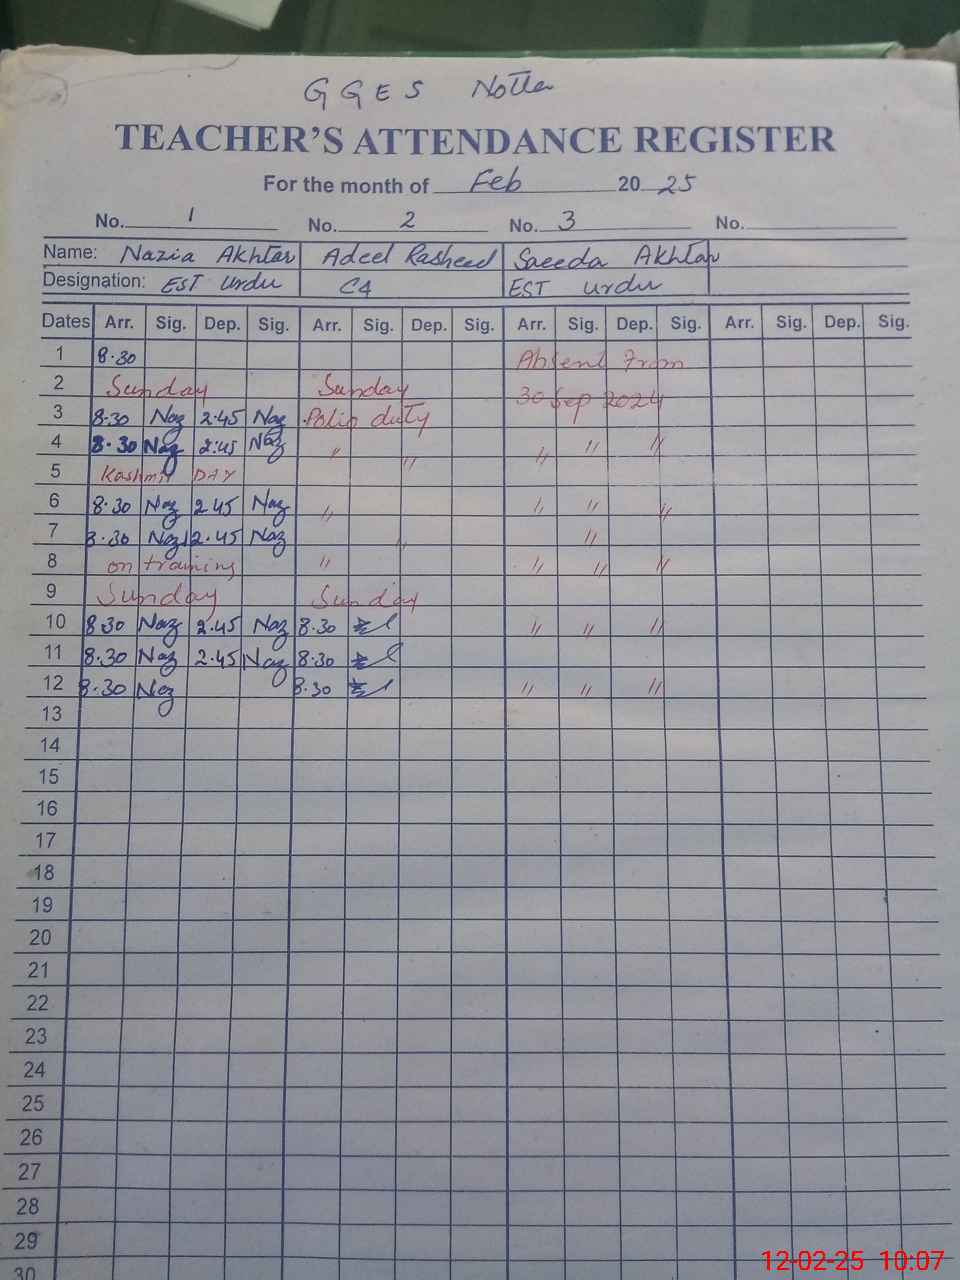 GGES Notla
TEACHER'S ATTENDANCE REGISTER
For the month of Feb 2025
No. 1 No. 2 No. 3 No.
Name: Nazia Akhtar Adeel Rasheed Saeeda Akhtar
Designation: EST Urdu C4 EST Urdu
Dates Arr. Sig. Dep. Sig. Arr. Sig. Dep. Sig. Arr. Sig. Dep. Sig. Arr. Sig. Dep. Sig.
1 8·30 Absent From
2 Sunday Sunday 30 Sep 2024
3 8·30 Naz 2·45 Naz Polio duty
4 8·30 Naz 2:45 Naz " " " " "
5 Kashmir DAY
6 8·30 Naz 2 45 Naz " " " "
7 8·30 Naz 2·45 Naz " "
8 on training " " " "
9 Sunday Sunday
10 8 30 Naz 2·45 Naz 8·30 " " "
11 8·30 Naz 2·45 Naz 8·30
12 8·30 Naz 8·30 " " "
13
14
15
16
17
18
19
20
21
22
23
24
25
26
27
28
29
30
12-02-25 10:07